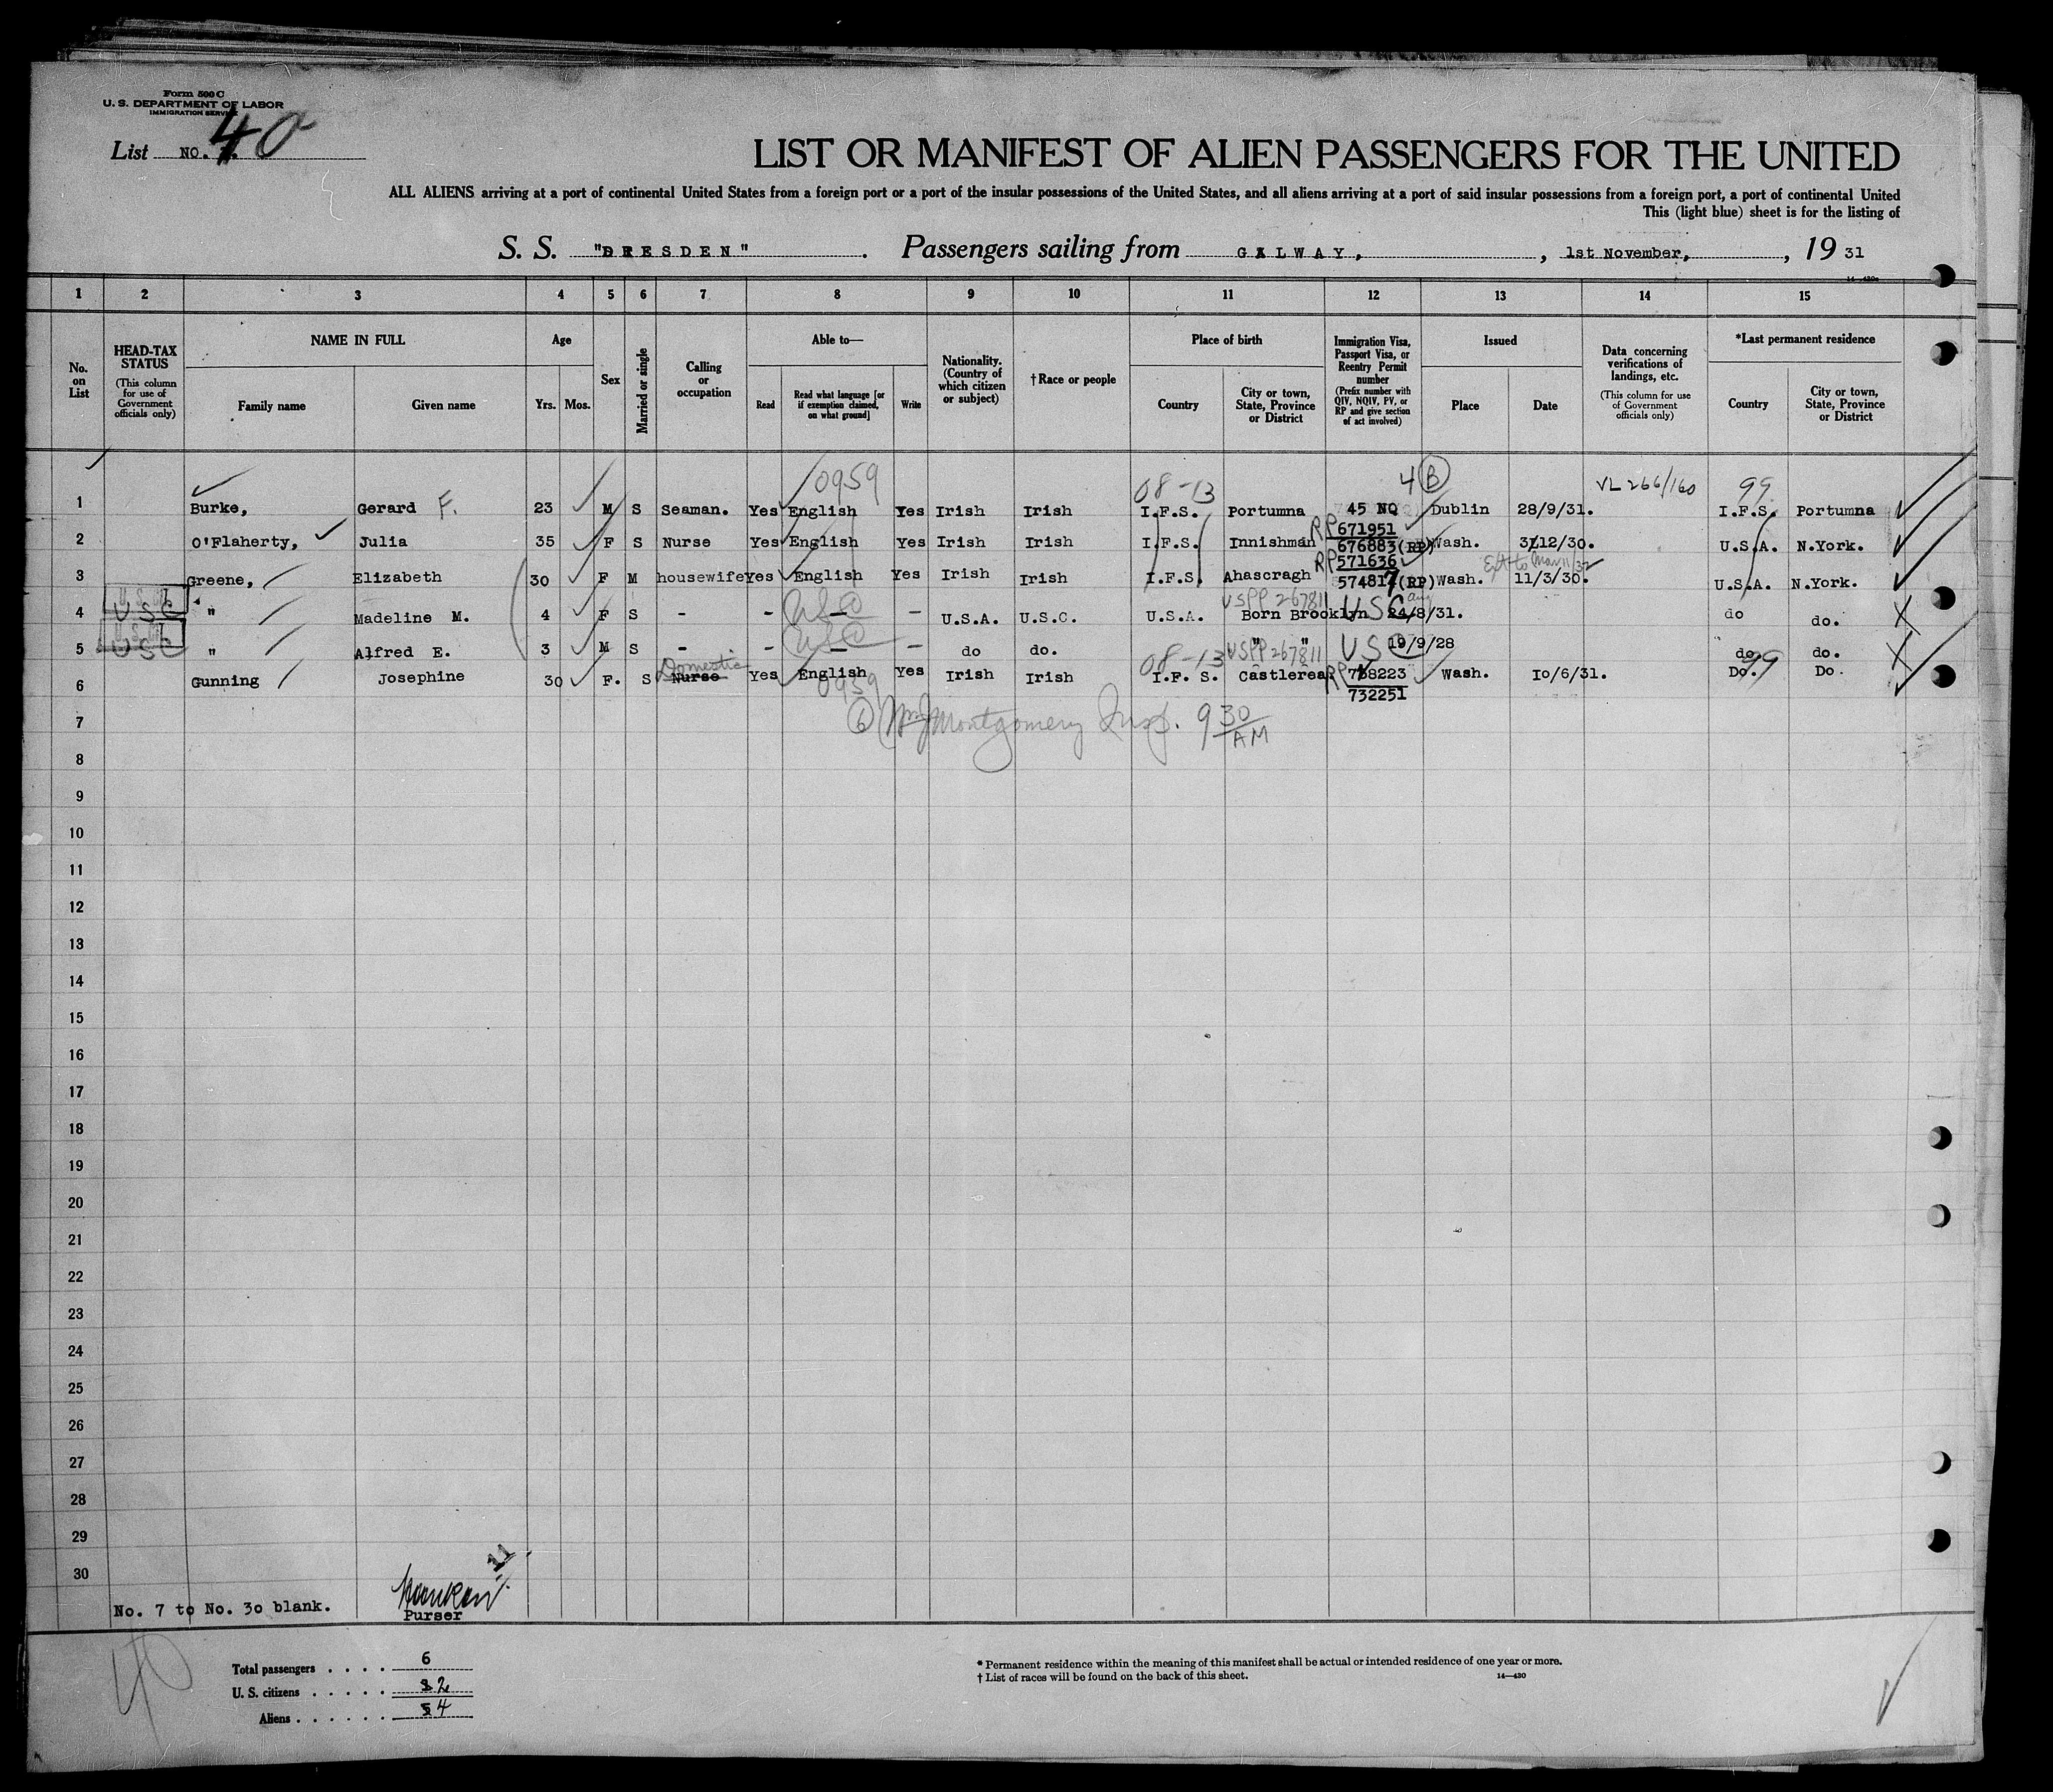 Form 500 C
U. S. DEPARTMENT OF LABOR
IMMIGRATION SERVICE
List NO. 40
LIST OR MANIFEST OF ALIEN PASSENGERS FOR THE UNITED
ALL ALIENS arriving at a port of continental United States from a foreign port or a port of the insular possessions of the United States, and all aliens arriving at a port of said insular possessions from a foreign port, a port of continental United
This (light blue) sheet is for the listing of
S. S. "DRESDEN". Passengers sailing from GALWAY, , 1st November, , 19 31
1 2 3 4 5 6 7 8 9 10 11 12 13 14 15
No. on List
HEAD-TAX STATUS
(This column for use of Government officials only)
NAME IN FULL
Family name Given name
Age
Yrs. Mos.
Sex
Married or single
Calling or occupation
Able to—
Read Read what language [or if exemption claimed, on what ground] Write
Nationality. (Country of which citizen or subject)
†Race or people
Place of birth
Country City or town, State, Province or District
Immigration Visa, Passport Visa, or Reentry Permit number
(Prefix number with QIV, NQIV, PV, or RP and give section of act involved)
Issued
Place Date
Data concerning verifications of landings, etc.
(This column for use of Government officials only)
*Last permanent residence
Country City or town, State, Province or District
0959 08-13 4 B VL 266/160 99
1 Burke, Gerard F. 23 M S Seaman. Yes English Yes Irish Irish I.F.S. Portumna 45 NQ Dublin 28/9/31. I.F.S. Portumna
RP 671951
2 O'Flaherty, Julia 35 F S Nurse Yes English Yes Irish Irish I.F.S. Innishman 676883(RP) Wash. 31/12/30. U.S.A. N.York.
RP 571636 Ext to Mar 11/32
3 Greene, Elizabeth 30 F M housewife Yes English Yes Irish Irish I.F.S. Ahascragh 574817(RP) Wash. 11/3/30. U.S.A. N.York.
USPP 267811
4 USC " Madeline M. 4 F S - - USC - - U.S.A. U.S.C. U.S.A. Born Brooklyn USC 24/8/31. do do.
5 USC " Alfred E. 3 M S - - USC - - do do. USPP 267811 " " USC 19/9/28 do. do.
Domestic 08-13 99
6 Gunning Josephine 30 F. S Nurse Yes English Yes Irish Irish I.F. S. Castlerea RP 738223 Wash. 10/6/31. Do. Do.
0959 732251
7 6 Wm J Montgomery Insp. 9 30 AM
8
9
10
11
12
13
14
15
16
17
18
19
20
21
22
23
24
25
26
27
28
29
30
No. 7 to No. 30 blank.
Purser
40
Total passengers . . . . 6
U. S. citizens . . . . . 2
Aliens . . . . . . 4
* Permanent residence within the meaning of this manifest shall be actual or intended residence of one year or more.
† List of races will be found on the back of this sheet. 14—430